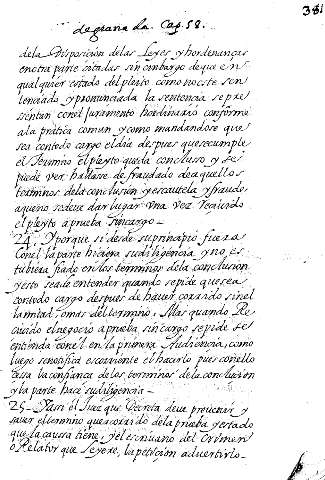 de granada. Cap. 58.
381
de la Disposicion de las Leyes y hordenanças
en otra parte citadas sin embargo de que en
qualquier estado del pleyto como no este sen
tenciado y pronunciada la sentencia se pre
sentan con el juramento hordinario conforme
a la prática comun y como mandandose que
sea con todo cargo el dia despues que se cumple
el termino el pleyto queda concluso y se
puede ver
de aquellos
terminos de la conclusion y es cautela y fraude
a que no se deve dar lugar una vez recivido
el pleyto a prueba sin cargo.
24. Y porque si desde su principio fuera
con el la parte hiciera su diligencia y no es
tubiera fiado en los terminos de la conclusion
y esto se a de entender quando se pide que sea
con todo cargo despues de haver corrido sin el
la mitad o mas del termino. Mas quando Re
civido el negocio a prueba sin cargo se pide se
entienda con el en la primera Audiencia, como
luego se notifica es corriente el hacerlo pues con ello
cesa la confiança de los terminos de la conclusion
y la parte hace su diligencia
25. Y assi el Juez que Decreta deve prevenir y
saver el termino que a corrido de la prueba y estado
que la caussa tiene, y el escrivano del Crimen
o Relator que Leyere, la peticion advertirlo